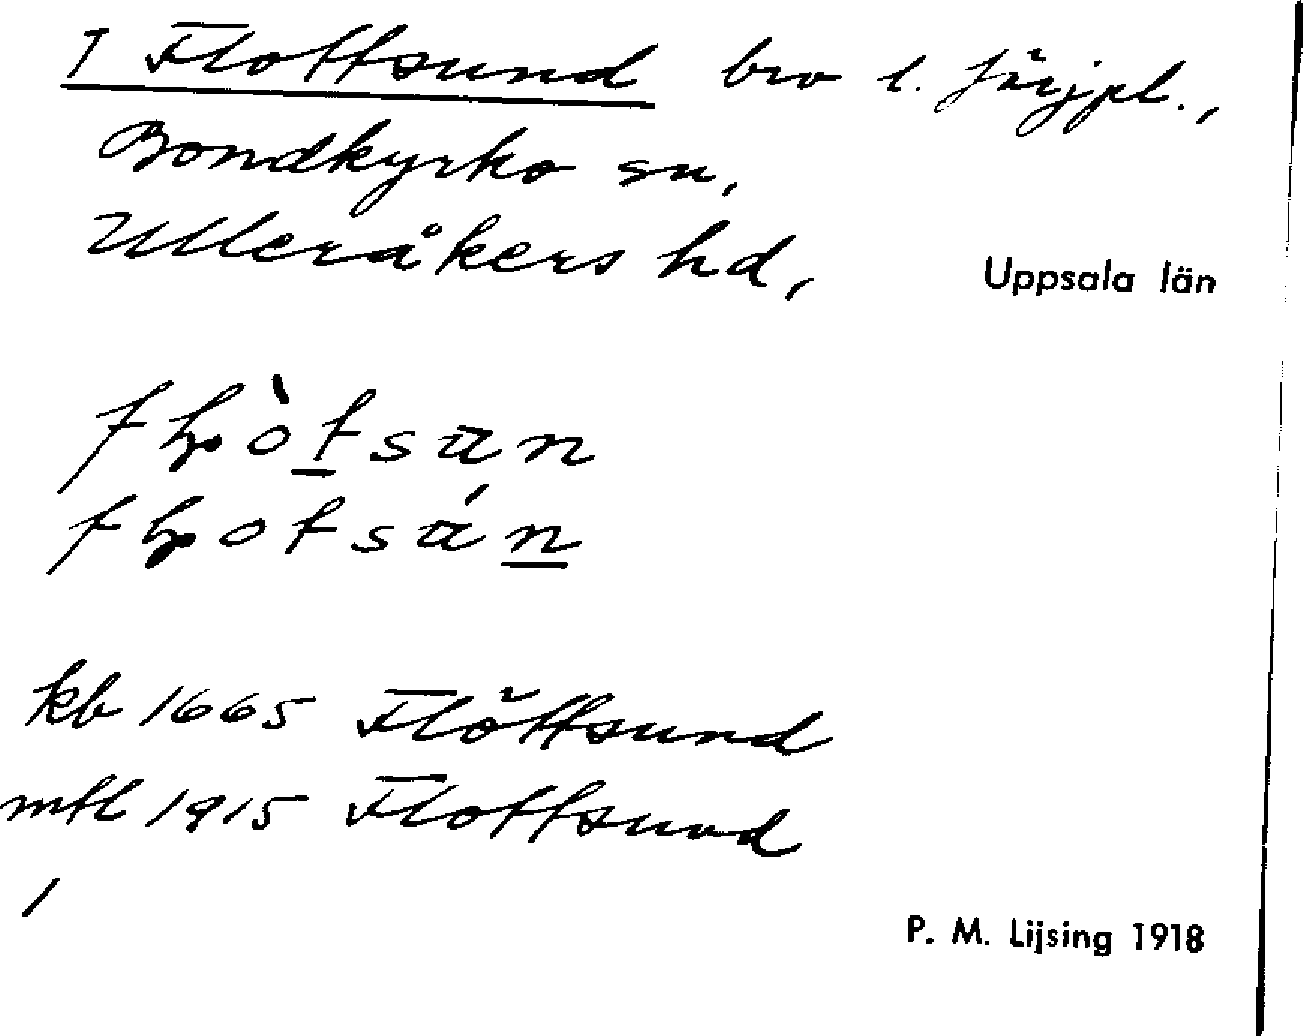 T Flottsund bro l. färjpl.,
Bondkyrko sn,
Ulleråkers hd,
Uppsala län
kb 1665 Flőttsund
mtl 1915 Flottsund
P. M. Lijsing 1918